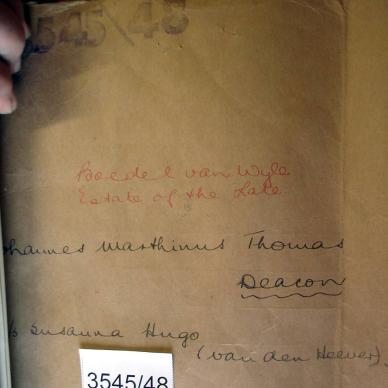 3545/48
Boedel van Wyle
Estate of the Late
Johannes Marthinus Thomas
Deacon
Susanna Hugo
(van den Heever)
3545/48